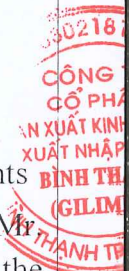 30218
CÔNG
CỔ PHẦ
N XUẤT KINH
XUẤT NHẬP
nts BÌNH TH
(GILIM
Mr.
THẠNH TP
the